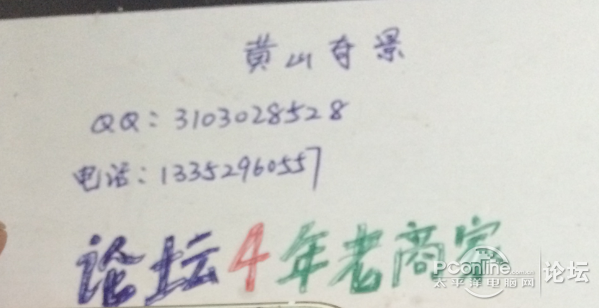 黄山夺景
QQ：3103028528
电话：13352960557
论坛4年老商家
PConline 论坛
太平洋电脑网